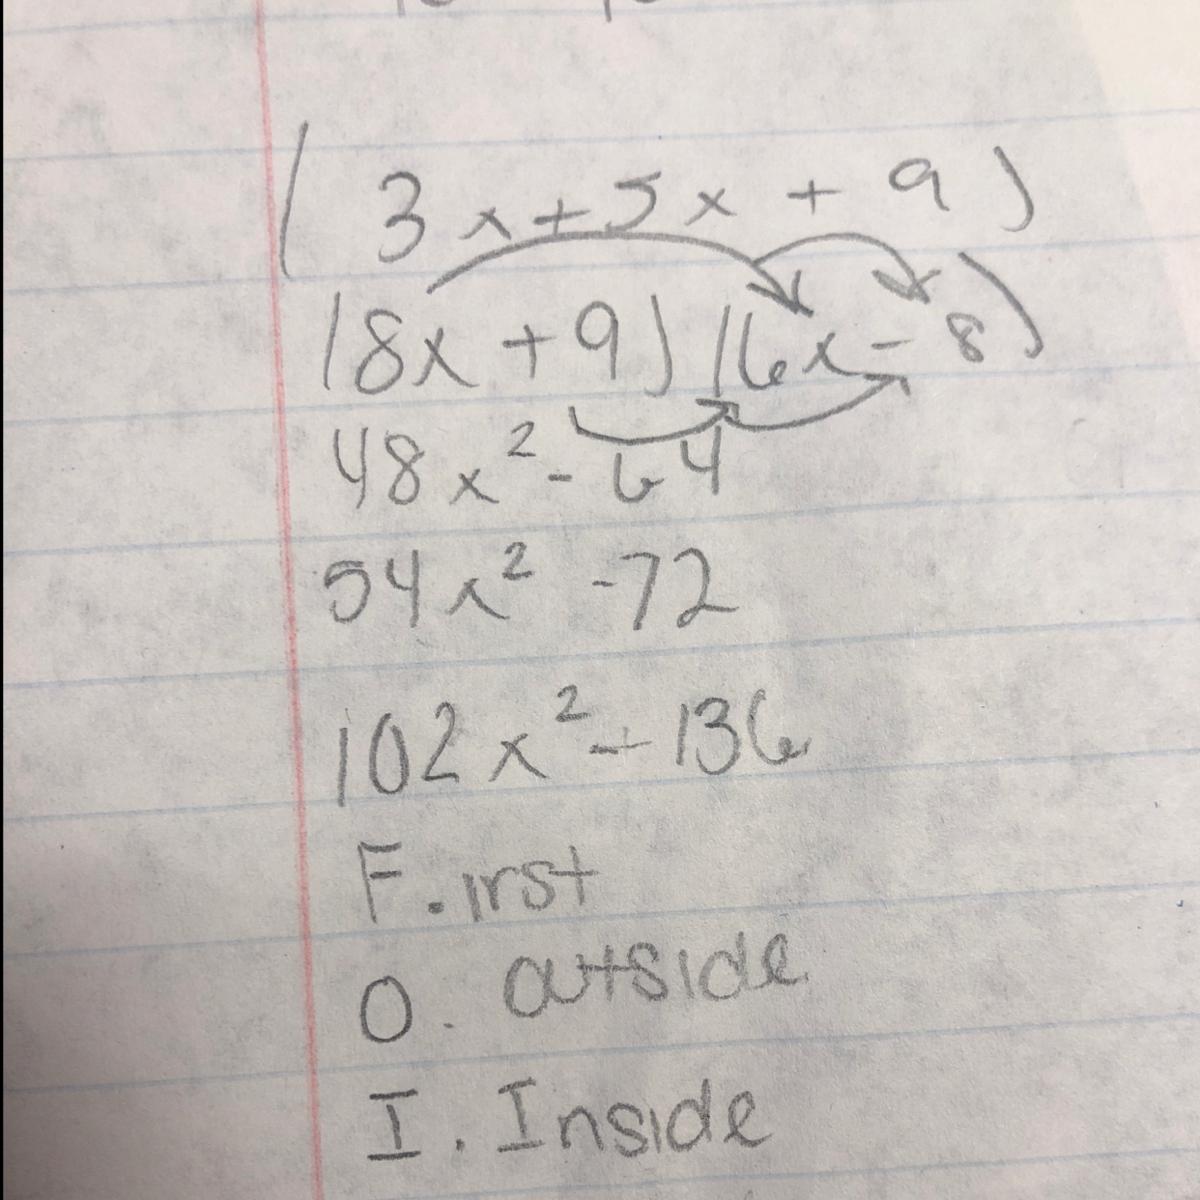 ( 3x+5x + 9 )
(8x + 9) (6x - 8)
48x² - 64
54x² -72
102x² - 136
F. irst
O. outside
I. Inside